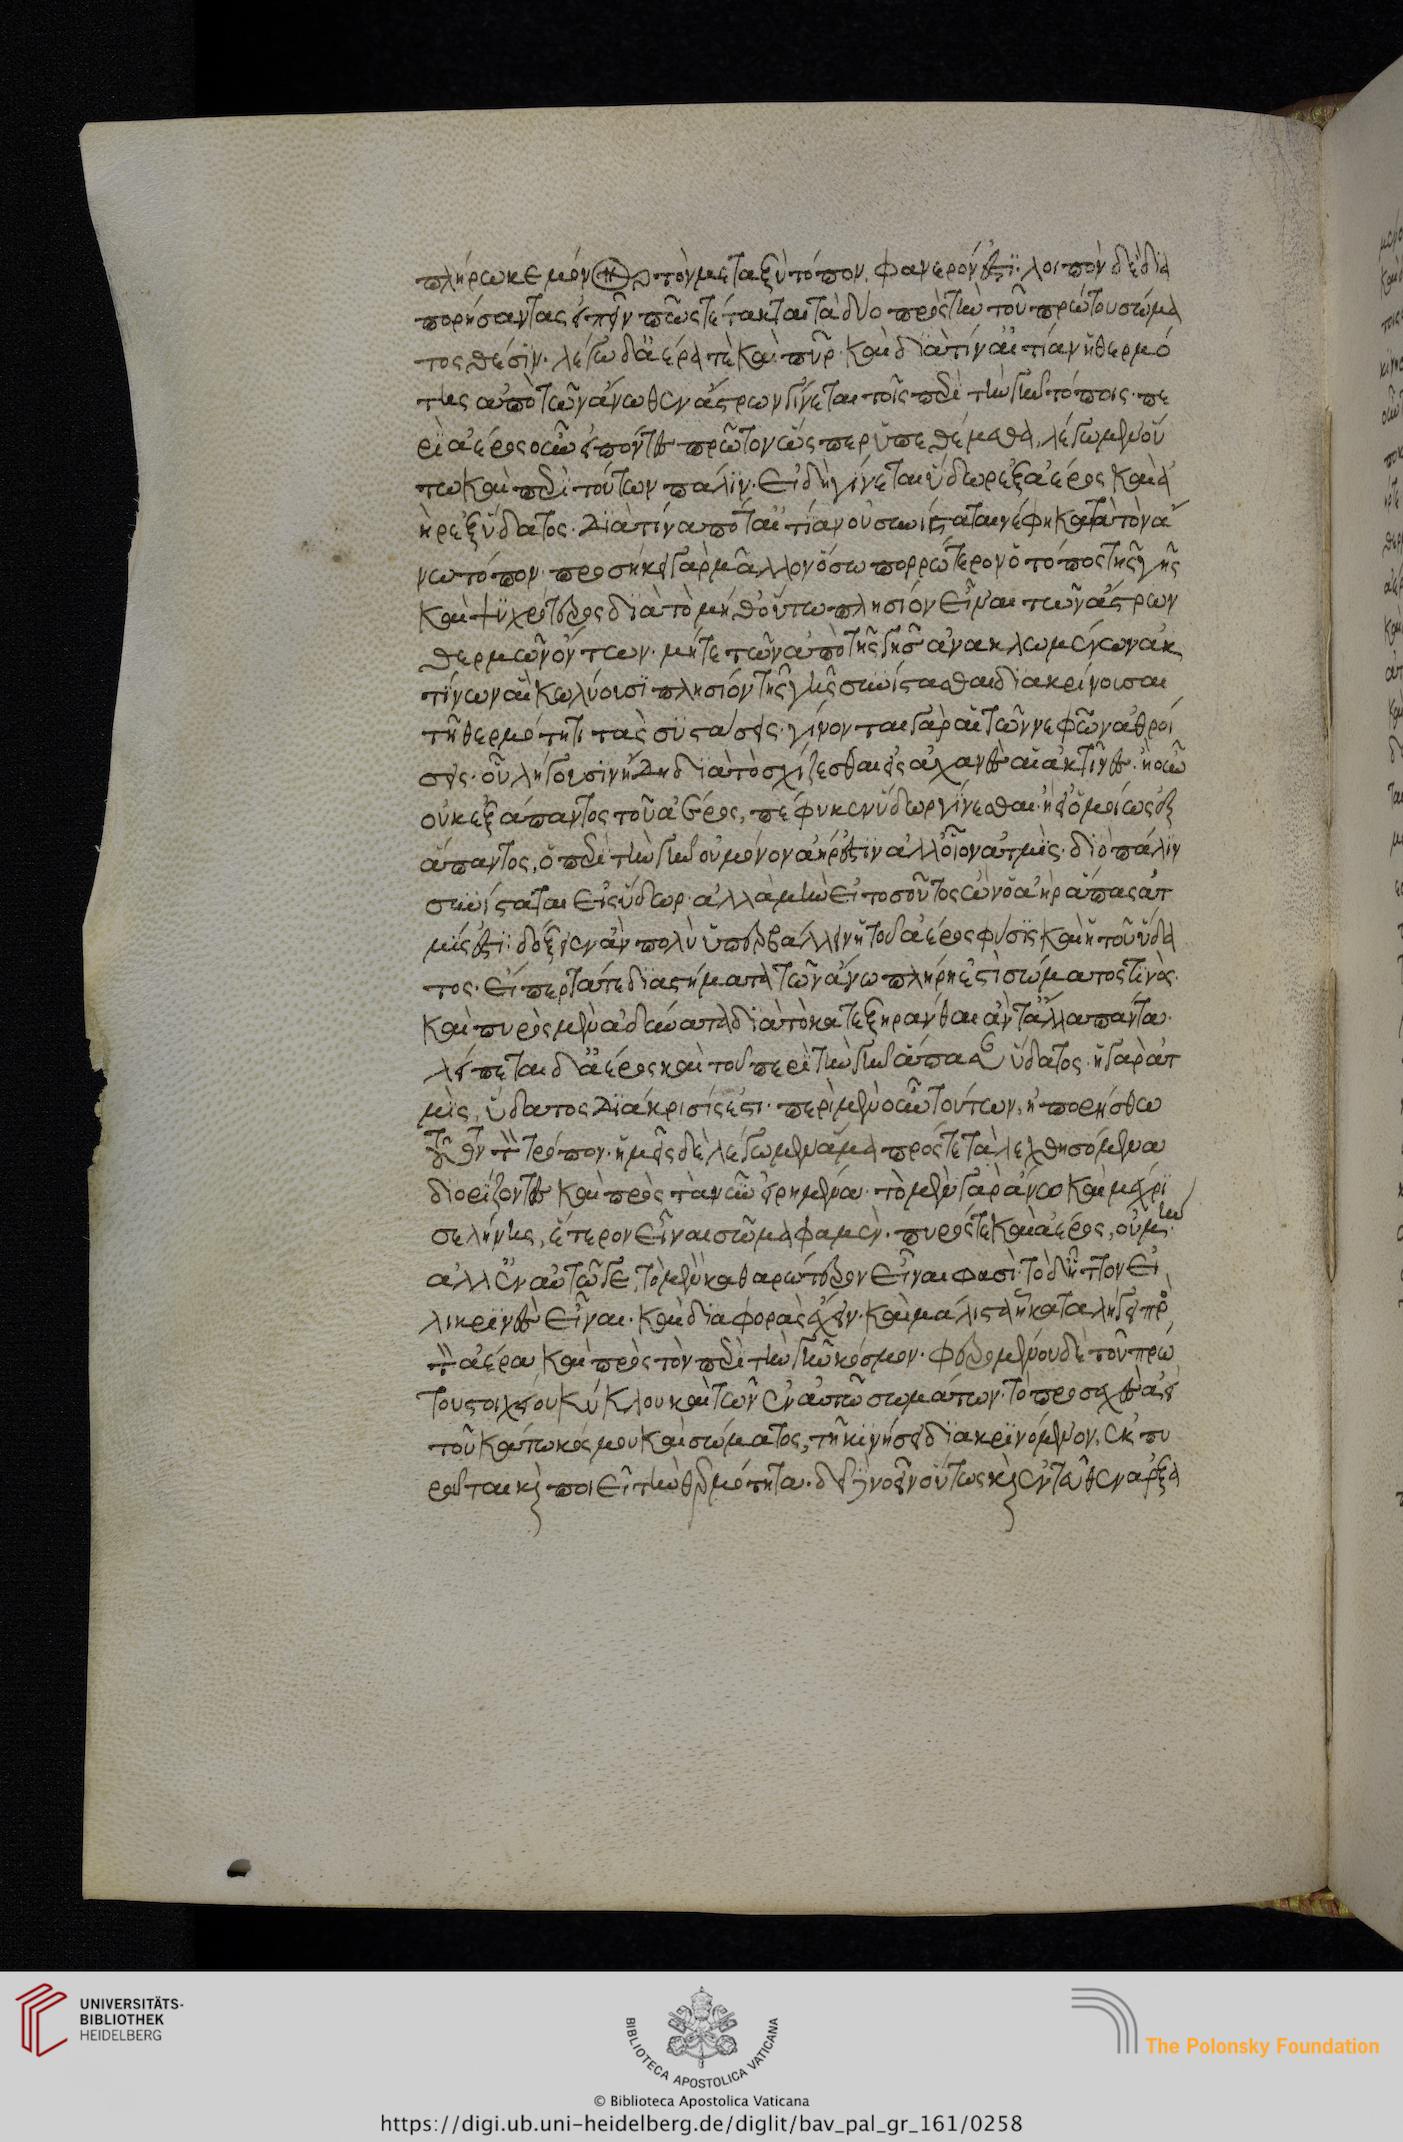 πλήρωκε μόν τὸν μεταξὺ τόπον. φανερόν ἐστι. λοιπὸν δὲ δια
πορήσαντας εἰπεῖν πῶς τέτακται τὰ δύο πρὸς τὴν τοῦ πρώτου σώμα
τος θέσιν. λέγω δ' ἀέρα τὲ καὶ πῦρ. καὶ διὰ τίν' αἰτίαν ἡ θερμό
της ἀπὸ τῶν ἄνωθεν ἄστρων γίνεται τοῖς περὶ τὴν γῆν τόποις. πε
ρὶ ἀέρος οὖν εἰπόντες πρῶτον ὥσπερ ὑπεθέμεθα, λέγωμεν οὕ
τω καὶ περὶ τούτων πάλιν. εἰ δὴ γίνεται ὕδωρ ἐξ ἀέρος καὶ ἀ
ὴρ ἐξ ὕδατος. διὰ τίνα ποτ' αἰτίαν οὐ συνίσταται νέφη κατὰ τὸν ἄ
νω τόπον. προσήκει γὰρ μᾶλλον ὅσω πορρώτερον ὁ τόπος τῆς γῆς
καὶ ψυχρότερος διὰ τὸ μήθ' οὕτω πλησίον εἶναι τῶν ἄστρων
θερμῶν ὄντων. μήτε τῶν ἀπὸ τῆς γῆς ἀνακλωμένων ἀκ
τίνων αἳ κωλύουσι πλησίον τῆς γῆς συνίστασθαι διακρίνουσαι
τῇ θερμότητι τὰς συστάσεις. γίνονται γὰρ αἱ τῶν νεφῶν ἀθροί
σεις. οὗ λήγουσιν ἤδη διὰ τὸ σχίζεσθαι εἰς ἀχανὲς αἱ ἀκτῖνες. ἢ οὖν
οὐκ ἐξ ἅπαντος τοῦ ἀέρος, πέφυκεν ὕδωρ γίνεσθαι. ἢ εἰ ὁμοίως ἐξ
ἅπαντος, ὁ περὶ τὴν γῆν οὐ μόνον ἀήρ ἐστιν ἀλλ' οἷον ἀτμίς. διὸ πάλιν
συνίσταται εἰς ὕδωρ. ἀλλὰ μὴν εἰ τοσοῦτος ὢν ὁ ἀὴρ ἅπας ἀτ
μίς ἐστι. δόξειεν ἂν πολὺ ὑπερβάλλειν ἡ τοῦ ἀέρος φύσις καὶ ἡ τοῦ ὕδα
τος. εἴπερ τά τε διαστήματα τῶν ἄνω πλήρη ἐστὶ σώματος τινός.
καὶ πυρὸς μὲν ἀδύνατα διὰ τὸ κατεξηράνθαι ἂν τἆλλα πάντα.
λείπεται δ' ἀέρος καὶ τοῦ περὶ τὴν γῆν ἅπασαν ὕδατος. ἡ γὰρ ἀτ
μὶς, ὕδατος διάκρισίς ἐστι. περὶ μὲν οὖν τούτων, ἠπορήσθω
τοῦτον τὸν τρόπον. ἡμεῖς δὲ λέγωμεν ἅμα πρός τε τὰ λεχθησόμενα
διορίζοντες καὶ πρὸς τὰ νῦν εἰρημένα. τὸ μὲν γὰρ ἄνω καὶ μέχρι
σελήνης, ἕτερον εἶναι σῶμα φαμὲν. πυρός τε καὶ ἀέρος, οὐ μὴν
ἀλλ' ἐν αὐτῷ γε, τὸ μὲν καθαρώτερον εἶναι φασὶ. τὸ δ' ἧττον εἰ
λικρινὲς εἶναι. καὶ διαφορὰς ἔχειν. καὶ μάλιστα ᾗ καταλήγει πρὸς
τὸν ἀέρα καὶ πρὸς τὸν περὶ τὴν γῆν κόσμον. φερομένου δὲ τοῦ πρώ
του στοιχείου κύκλου καὶ τῶν ἐν αὐτῷ σωμάτων. τὸ προσεχὲς ἀεὶ
τοῦ κάτω κόσμου καὶ σώματος, τῇ κινήσει διακρινόμενον, ἐκπυ
ροῦται καὶ ποιεῖ τὴν θερμότητα. δεῖ νοεῖν οὕτως καὶ ἐντεῦθεν ἀρξα
UNIVERSITÄTS-
BIBLIOTHEK
HEIDELBERG
BIBLIOTECA APOSTOLICA VATICANA
The Polonsky Foundation
© Biblioteca Apostolica Vaticana
https://digi.ub.uni-heidelberg.de/diglit/bav_pal_gr_161/0258